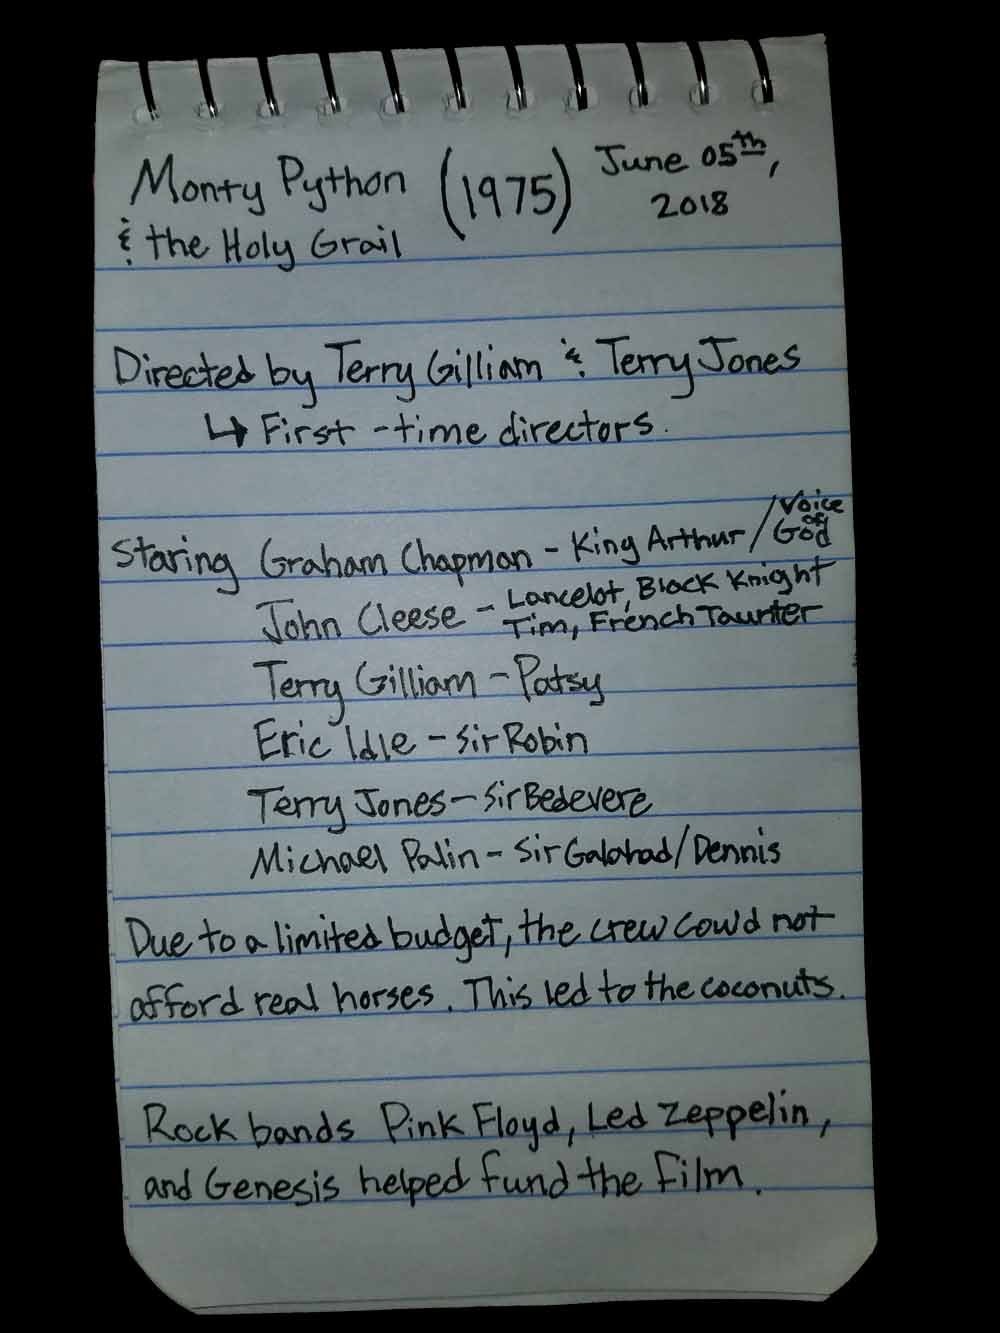 Monty Python (1975) June 05th,
& the Holy Grail 2018
Directed by Terry Gilliam & Terry Jones
↳ First-time directors.
Staring Graham Chapman - King Arthur/Voice of God
John Cleese - Lancelot, Black Knight
Tim, French Taunter
Terry Gilliam - Patsy
Eric Idle - Sir Robin
Terry Jones - Sir Bedevere
Michael Palin - Sir Galahad/Dennis
Due to a limited budget, the crew could not
afford real horses. This led to the coconuts.
Rock bands Pink Floyd, Led Zeppelin,
and Genesis helped fund the film.